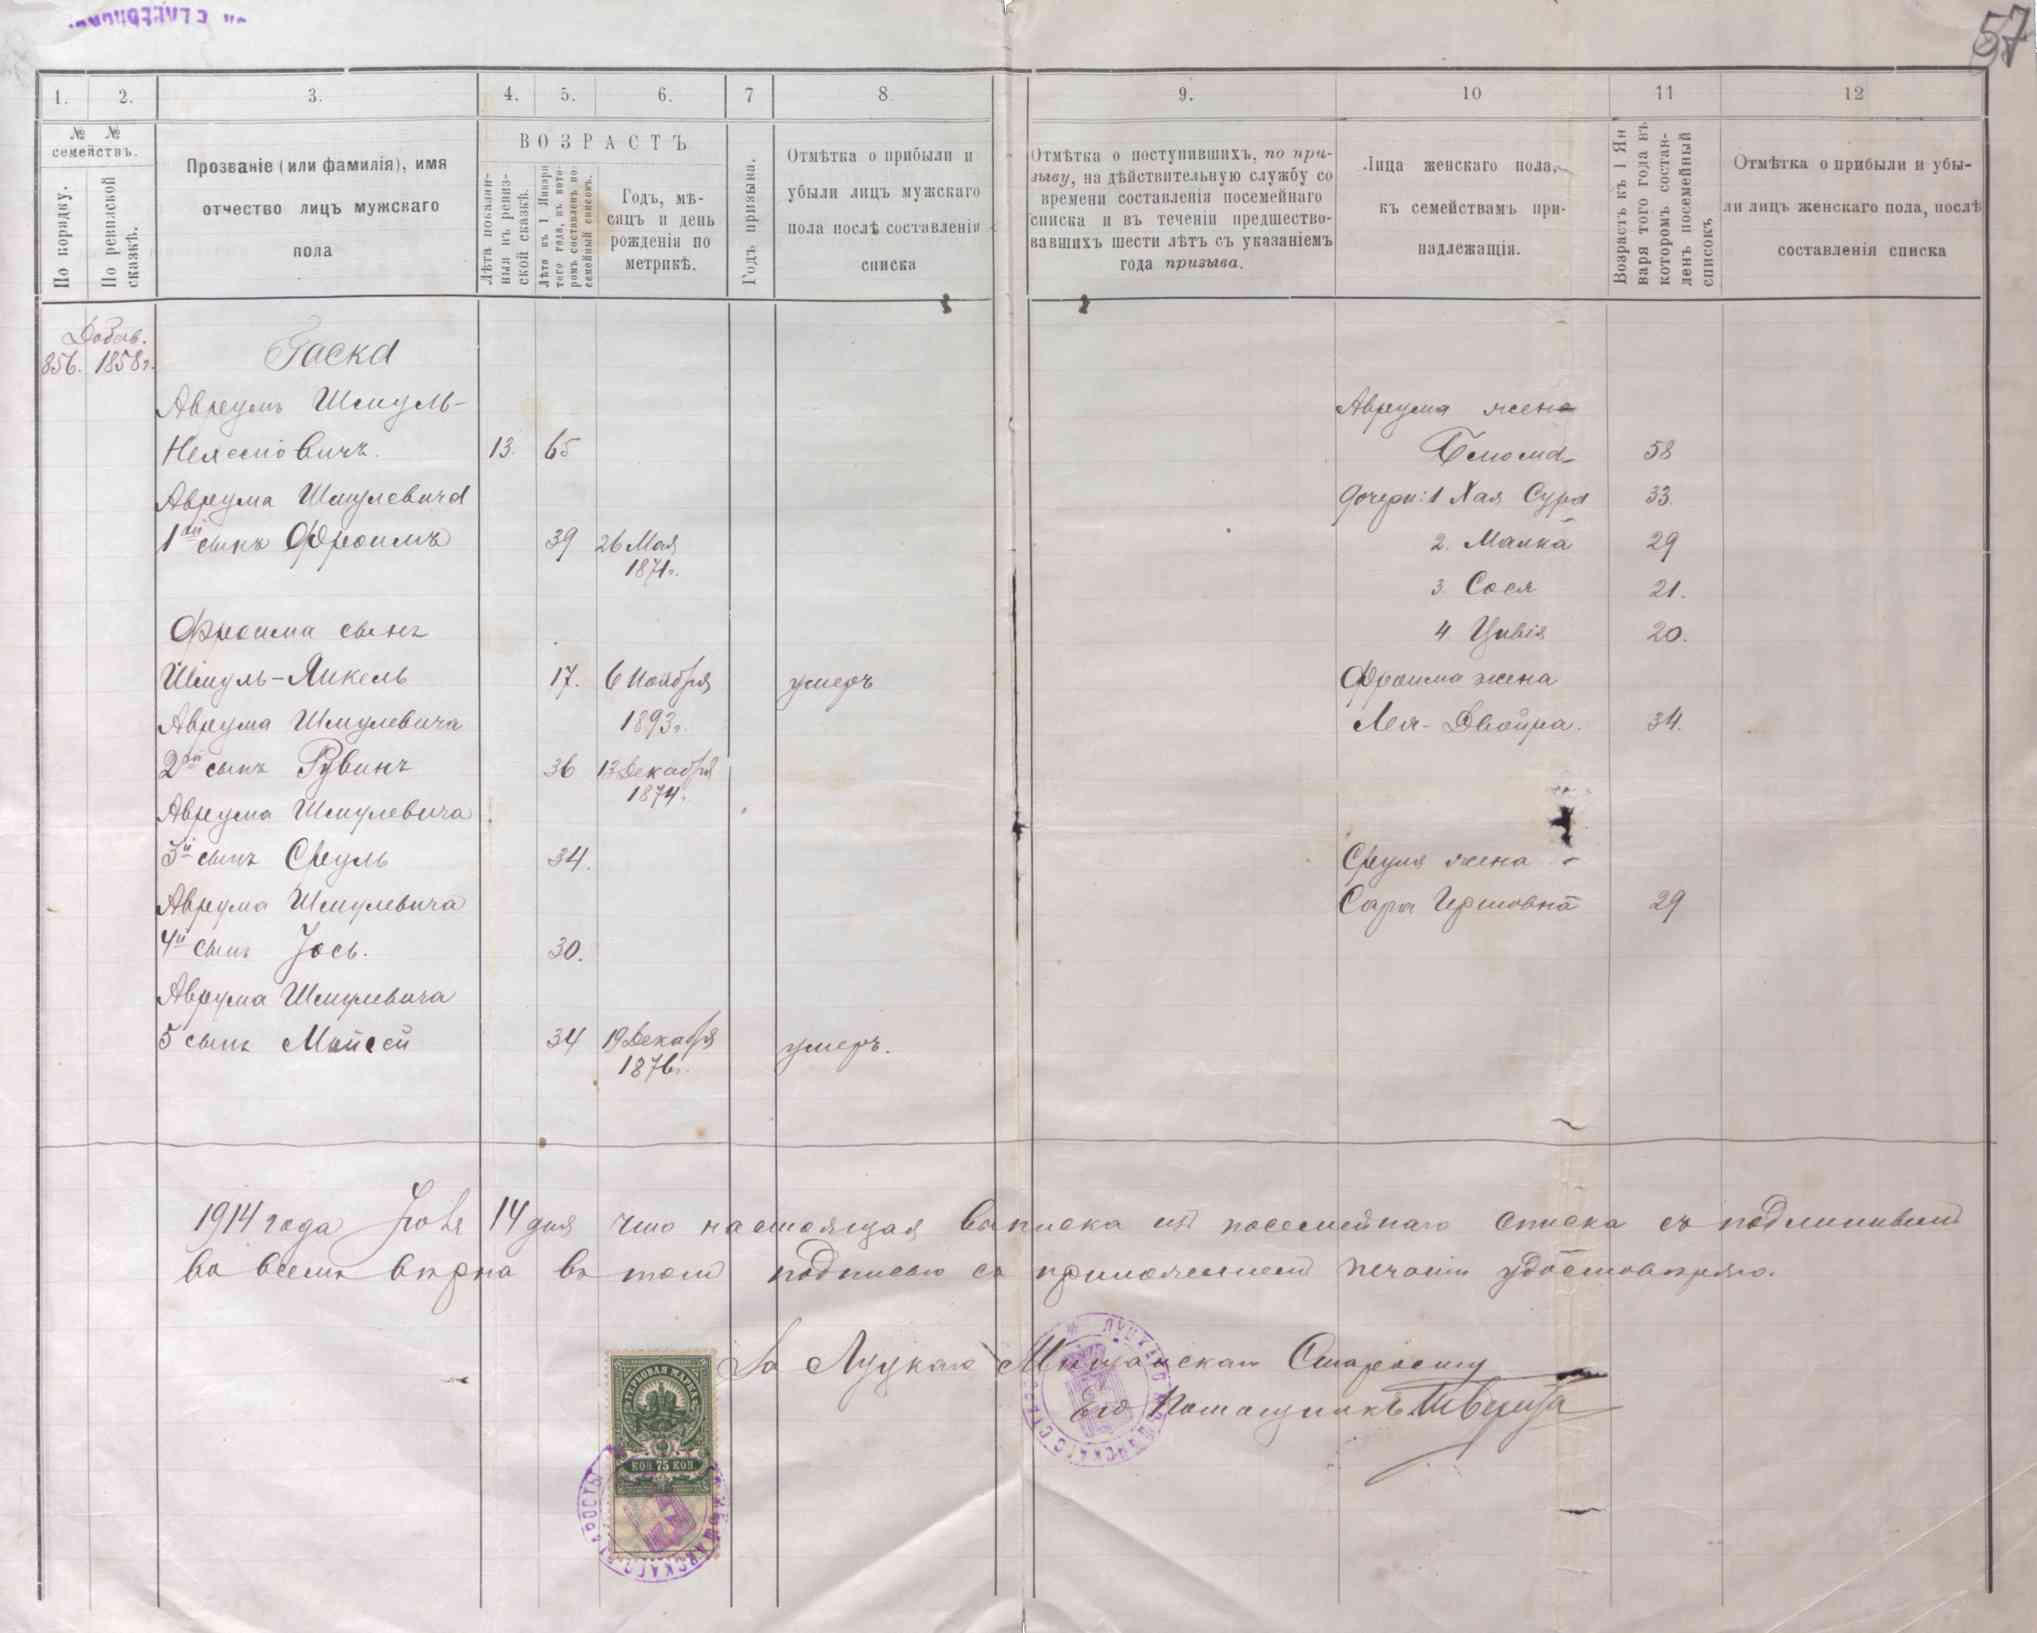 57
1.
2.
3.
4.
5.
6.
7
8.
9.
10
11
12
№ № семействъ.
По порядку.
По ревизской сказкѣ.
Прозваніе (или фамилія), имя
отчество лицъ мужскаго
пола
ВОЗРАСТЪ
Лѣта показан-
ныя въ ревиз-
ской сказкѣ.
Лѣта къ 1 Января
того года, въ кото-
ромъ составленъ по-
семейный списокъ.
Годъ, мѣ-
сяцъ и день
рожденія по
метрикѣ.
Годъ призыва.
Отмѣтка о прибыли и
убыли лицъ мужскаго
пола послѣ составленія
списка
Отмѣтка о поступившихъ, по при-
зыву, на дѣйствительную службу со
времени составленія посемейнаго
списка и въ теченіи предшество-
вавшихъ шести лѣтъ съ указаніемъ
года призыва.
Лица женскаго пола,
къ семействамъ при-
надлежащія.
Возрастъ къ 1 Ян
варя того года въ
которомъ состав-
ленъ посемейный
списокъ
Отмѣтка о прибыли и убы-
ли лицъ женскаго пола, послѣ
составленія списка
Добав.
856. 1858 г. Гаска
Авреумъ Шмуль- Авреума жена
13. 65 Блюма 58
Авреума Шмулевича дочери: 1 Хая Сура 33.
1й сынъ Фроимъ 39 26 Мая 2. Малка 29
1871 г.
3. Сося 21.
Фроима сынъ 4 Цивія 20.
Шмуль-Янкель 17. 6 Ноября умеръ Фроима жена
Авреума Шмулевича 1893 г. Лея-Двойра. 34.
2й сынъ Рувинъ 36 13 Декабря
1874.
Авреума Шмулевича
3й сынъ Сруль 34. Сруля жена
Авреума Шмулевича Сара Гершовна 29
4й сынъ Іось. 30.
Авреума Шмулевича
5 сынъ Мойсей 34 19 Декабря умеръ.
1876 г.
1914 года Іюля 14 дня что настоящая выписка изъ посемейнаго списка съ подлиннымъ
во всемъ вѣрна въ томъ подписью съ приложеніемъ печати удостовѣряю.
За Луцкаго Мѣщанскаго Старосту
его Помощникъ
ГЕРБОВАЯ МАРКА
КОП. 75 КОП.
МѢЩАНСКАГО СТАРОСТЫ
ЛУЦКАГО МѢЩАНСКАГО СТАРОСТЫ